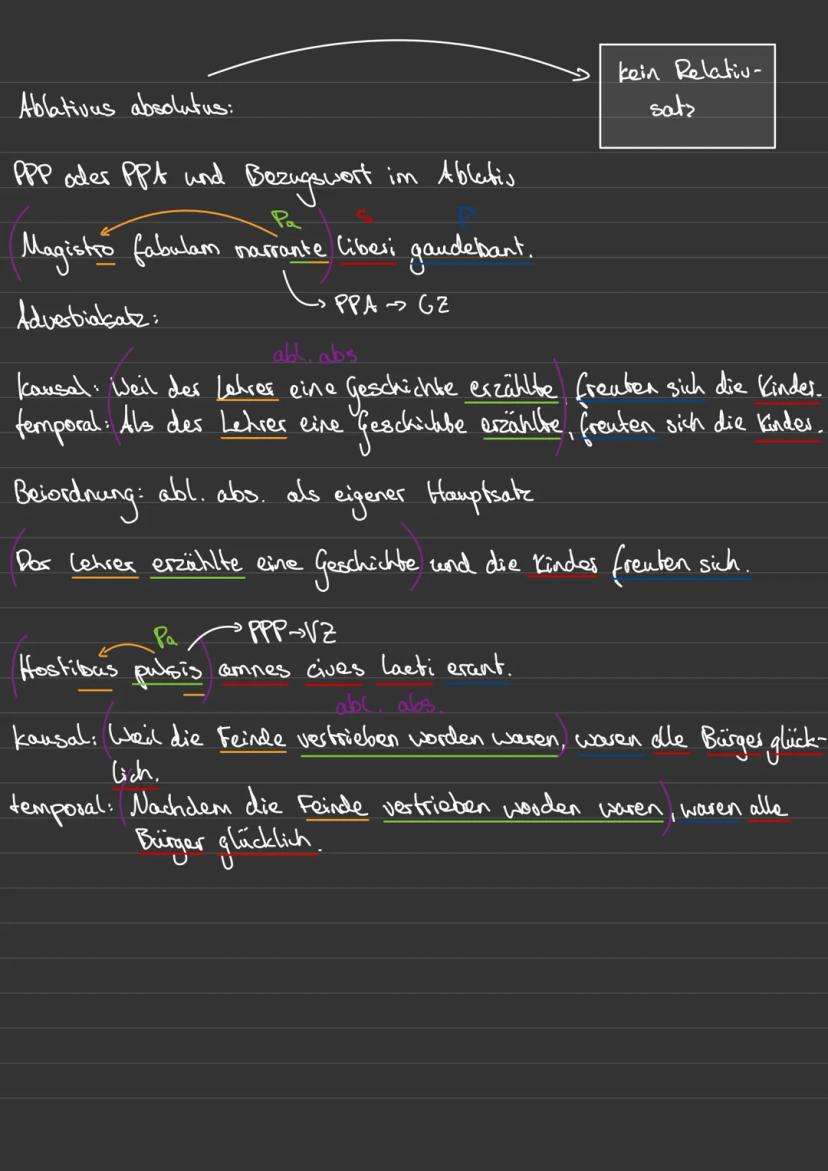 kein Relativ-
satz
Ablativus absolutus:
PPP oder PPA und Bezugswort im Ablativ
Pa S P
(Magistro fabulam narrante) liberi gaudebant.
→ PPA → GZ
Adverbialsatz:
abl. abs
kausal: (Weil der Lehrer eine Geschichte erzählte), freuten sich die Kinder.
temporal: (Als der Lehrer eine Geschichte erzählte), freuten sich die Kinder.
Beiordnung: abl. abs. als eigener Hauptsatz
(Der Lehrer erzählte eine Geschichte) und die Kinder freuten sich.
Pa → PPP → VZ
(Hostibus pulsis) omnes cives laeti erant.
abl. abs.
kausal: (Weil die Feinde vertrieben worden waren), waren alle Bürger glück-
lich.
temporal: (Nachdem die Feinde vertrieben worden waren), waren alle
Bürger glücklich.